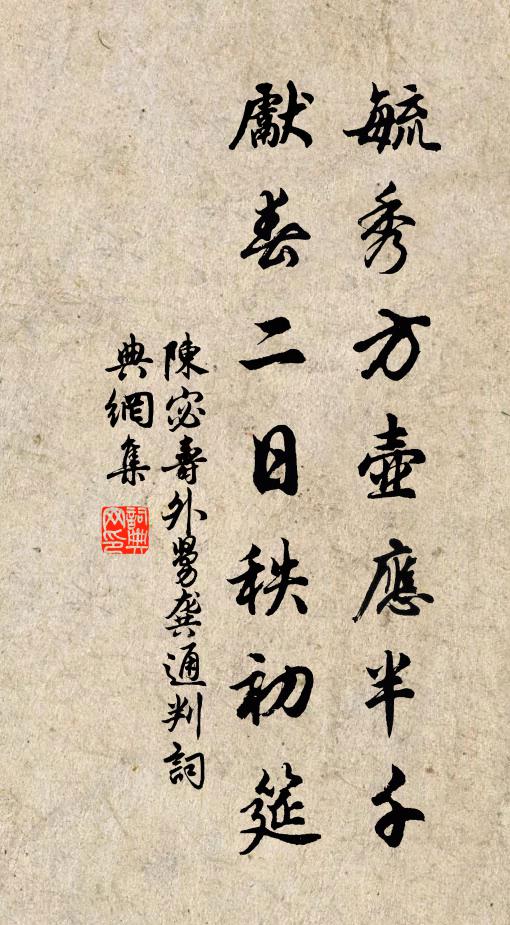 毓秀方壺應半千
獻春二日秩初筵
陳宓壽外舅龔通判詞
典網集
詞典網印